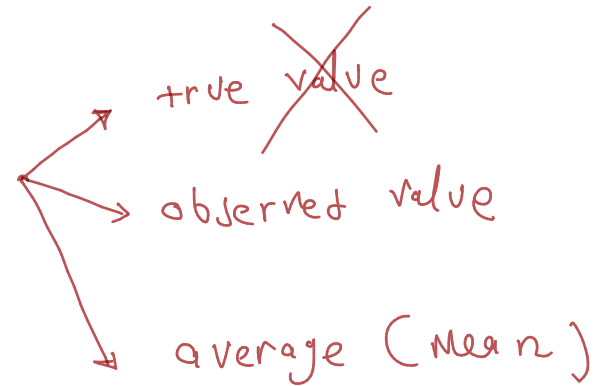 true value
observed value
average (Mean)